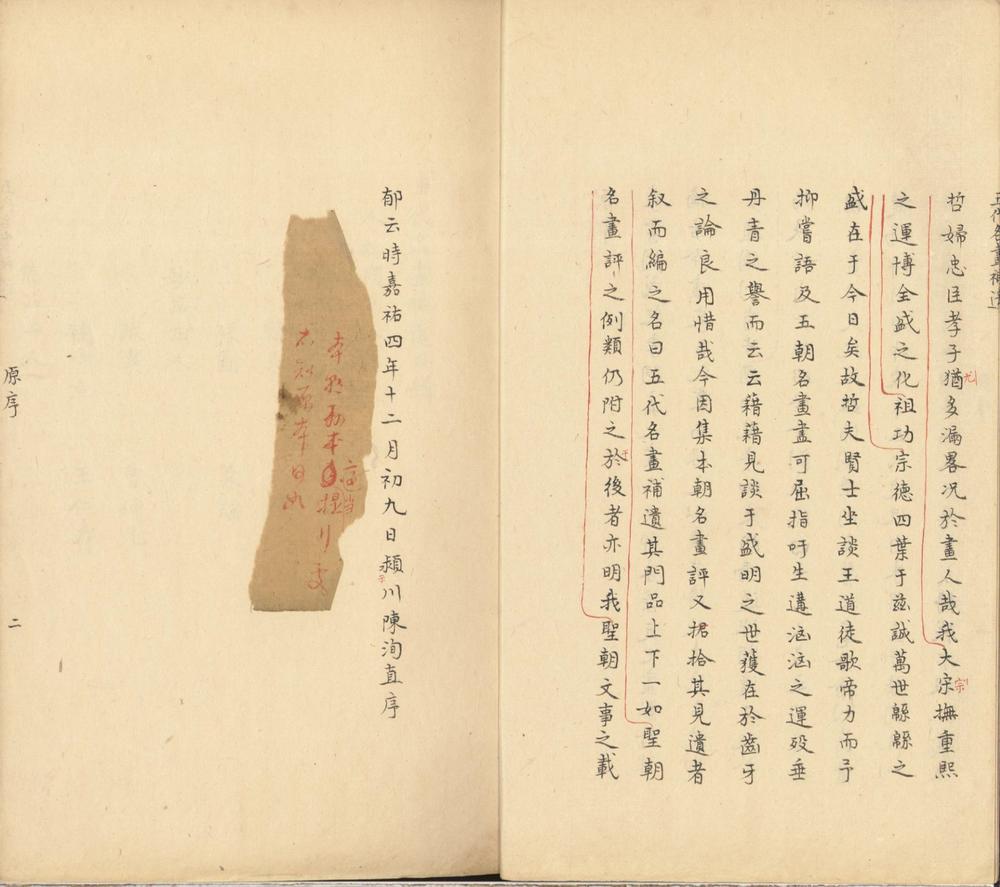 五代名畫補遺
哲婦忠臣孝子猶多漏畧况於畫人哉我大宗撫重熙
尤
宗
之運博全盛之化祖功宗德四葉于兹誠萬世緜緜之
盛在于今日矣故哲夫賢士坐談王道徒歌帝力而予
抑嘗語及五朝名畫盡可屈指吁生遘洶洶之運歿垂
丹青之譽而云云藉藉見談于盛明之世獲在於齒牙
之論良用惜哉今因集本朝名畫評又捃拾其見遺者
叙而編之名曰五代名畫補遺其門品上下一如聖朝
名畫評之例類仍附之於後者亦明我聖朝文事之載
于
郁云時嘉祐四年十二月初九日潁川陳洵直序
本
原本
原序
二